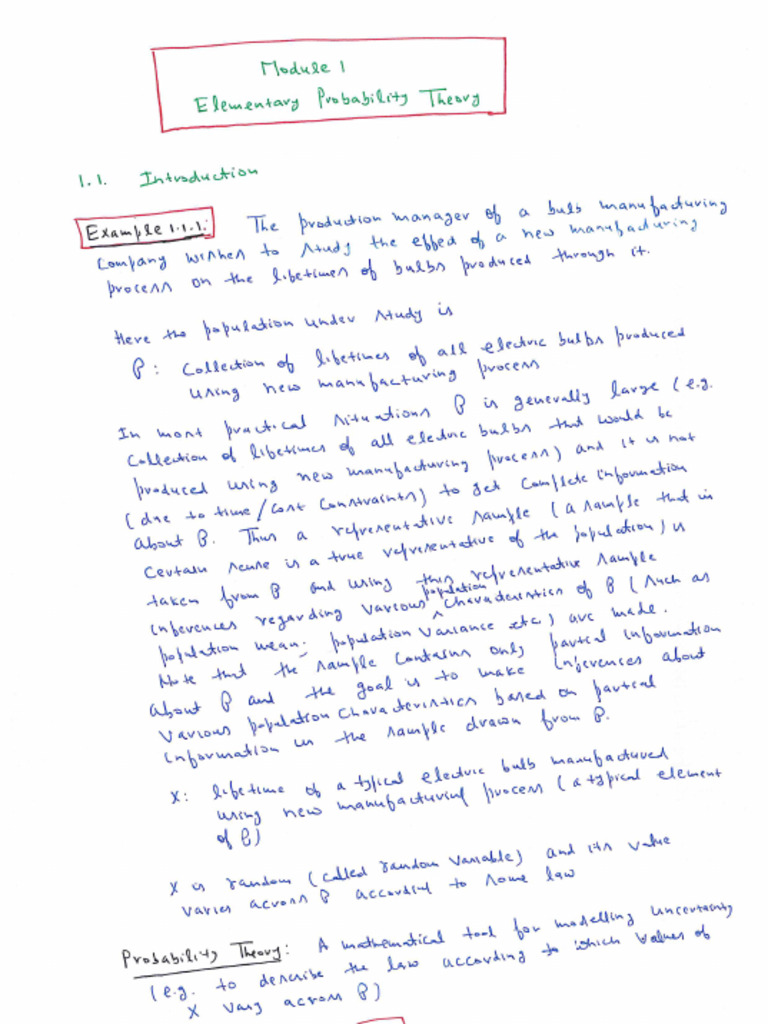 Module 1
Elementary Probability Theory
1.1. Introduction
Example 1.1.1: The production manager of a bulb manufacturing
company wishes to study the effect of a new manufacturing
process on the lifetimes of bulbs produced through it.
Here the population under study is
P: Collection of lifetimes of all electric bulbs produced
using new manufacturing process
In most practical situations P is generally large (e.g.
Collection of lifetimes of all electric bulbs that would be
produced using new manufacturing process) and it is not
(due to time/cost constraints) to get complete information
about P. Thus a representative sample (a sample that in
certain sense is a true representative of the population) is
taken from P and using this representative sample
inferences regarding various population characteristics of P (such as
population mean, population variance etc.) are made.
Note that the sample contains only partial information
about P and the goal is to make inferences about
various population characteristics based on partial
information in the sample drawn from P.
X: lifetime of a typical electric bulb manufactured
using new manufacturing process (a typical element
of P)
X is random (called random variable) and its value
varies across P according to some law
Probability Theory: A mathematical tool for modelling uncertainty
(e.g. to describe the law according to which values of
X vary across P)